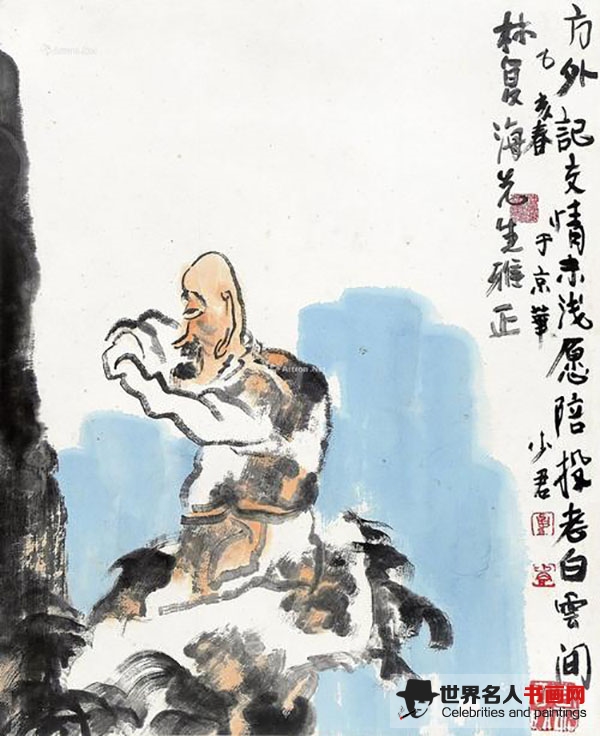 方外記交情未浅愿陪投老白雲间
乙亥春于京華少君
林复海先生雅正
Artron.Net
世界名人书画网
Celebrities and paintings